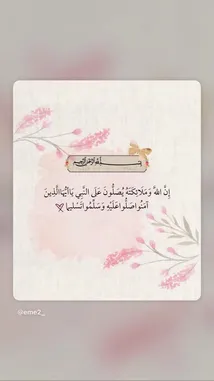 بسم الله الرحمن الرحيم
إِنَّ اللَّهَ وَمَلَائِكَتَهُ يُصَلُّونَ عَلَى النَّبِيِّ يَا أَيُّهَا الَّذِينَ
آمَنُوا صَلُّوا عَلَيْهِ وَسَلِّمُوا تَسْلِيمًا